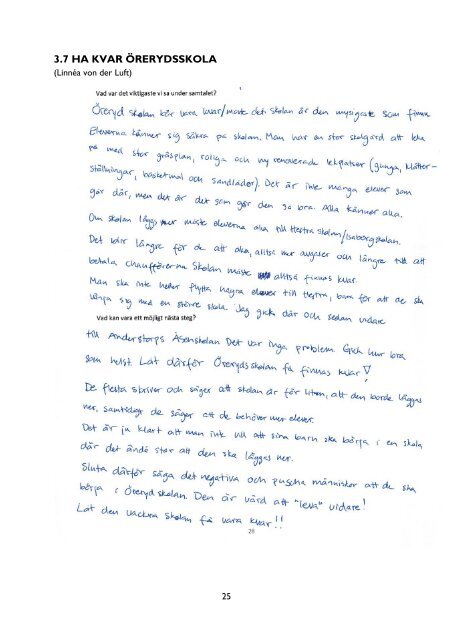 3.7 HA KVAR ÖRERYDSSKOLA
(Linnéa von der Luft)
1
Vad var det viktigaste vi sa under samtalet?
Öreryd skolan bör vara kvar/måste det! Skolan är den mysigaste som finns.
Eleverna känner sig säkra på skolan. Man har en stor skolgård att leka
på med stor gräsplan, roliga och ny renoverade lekplatser (gunga, klätter-
ställningar, basketmål och sandlådor). Det är inte många elever som
går där, men det är det som gör den så bra. Alla känner alla.
Om skolan läggs ner måste eleverna åka till Hestra skolan/Isabergskolan.
Det blir längre för de att åka, alltså mer avgaser och längre tid att
betala chaufförerna. Skolan måste alltså finnas kvar.
Man ska inte heller flytta några elever till Hestra, bara för att de ska
vänja sig med en större skola. Jag gick där och sedan vidare
Vad kan vara ett möjligt nästa steg?
till Anderstorps Åsenskolan. Det var inga problem. Gick hur bra
som helst. Låt därför Örerydsskolan få finnas kvar!
De flesta skriver och säger att skolan är för liten, att den borde läggas
ner, samtidigt de säger att de behöver mer elever.
Det är ju klart att man inte vill att sina barn ska börja i en skola
där det ändå står att den ska läggas ner.
Sluta därför säga det negativa och puscha människor att de ska
börja i Örerydskolan. Den är värd att "leva" vidare!
Låt den vackra skolan få vara kvar!!
28
25